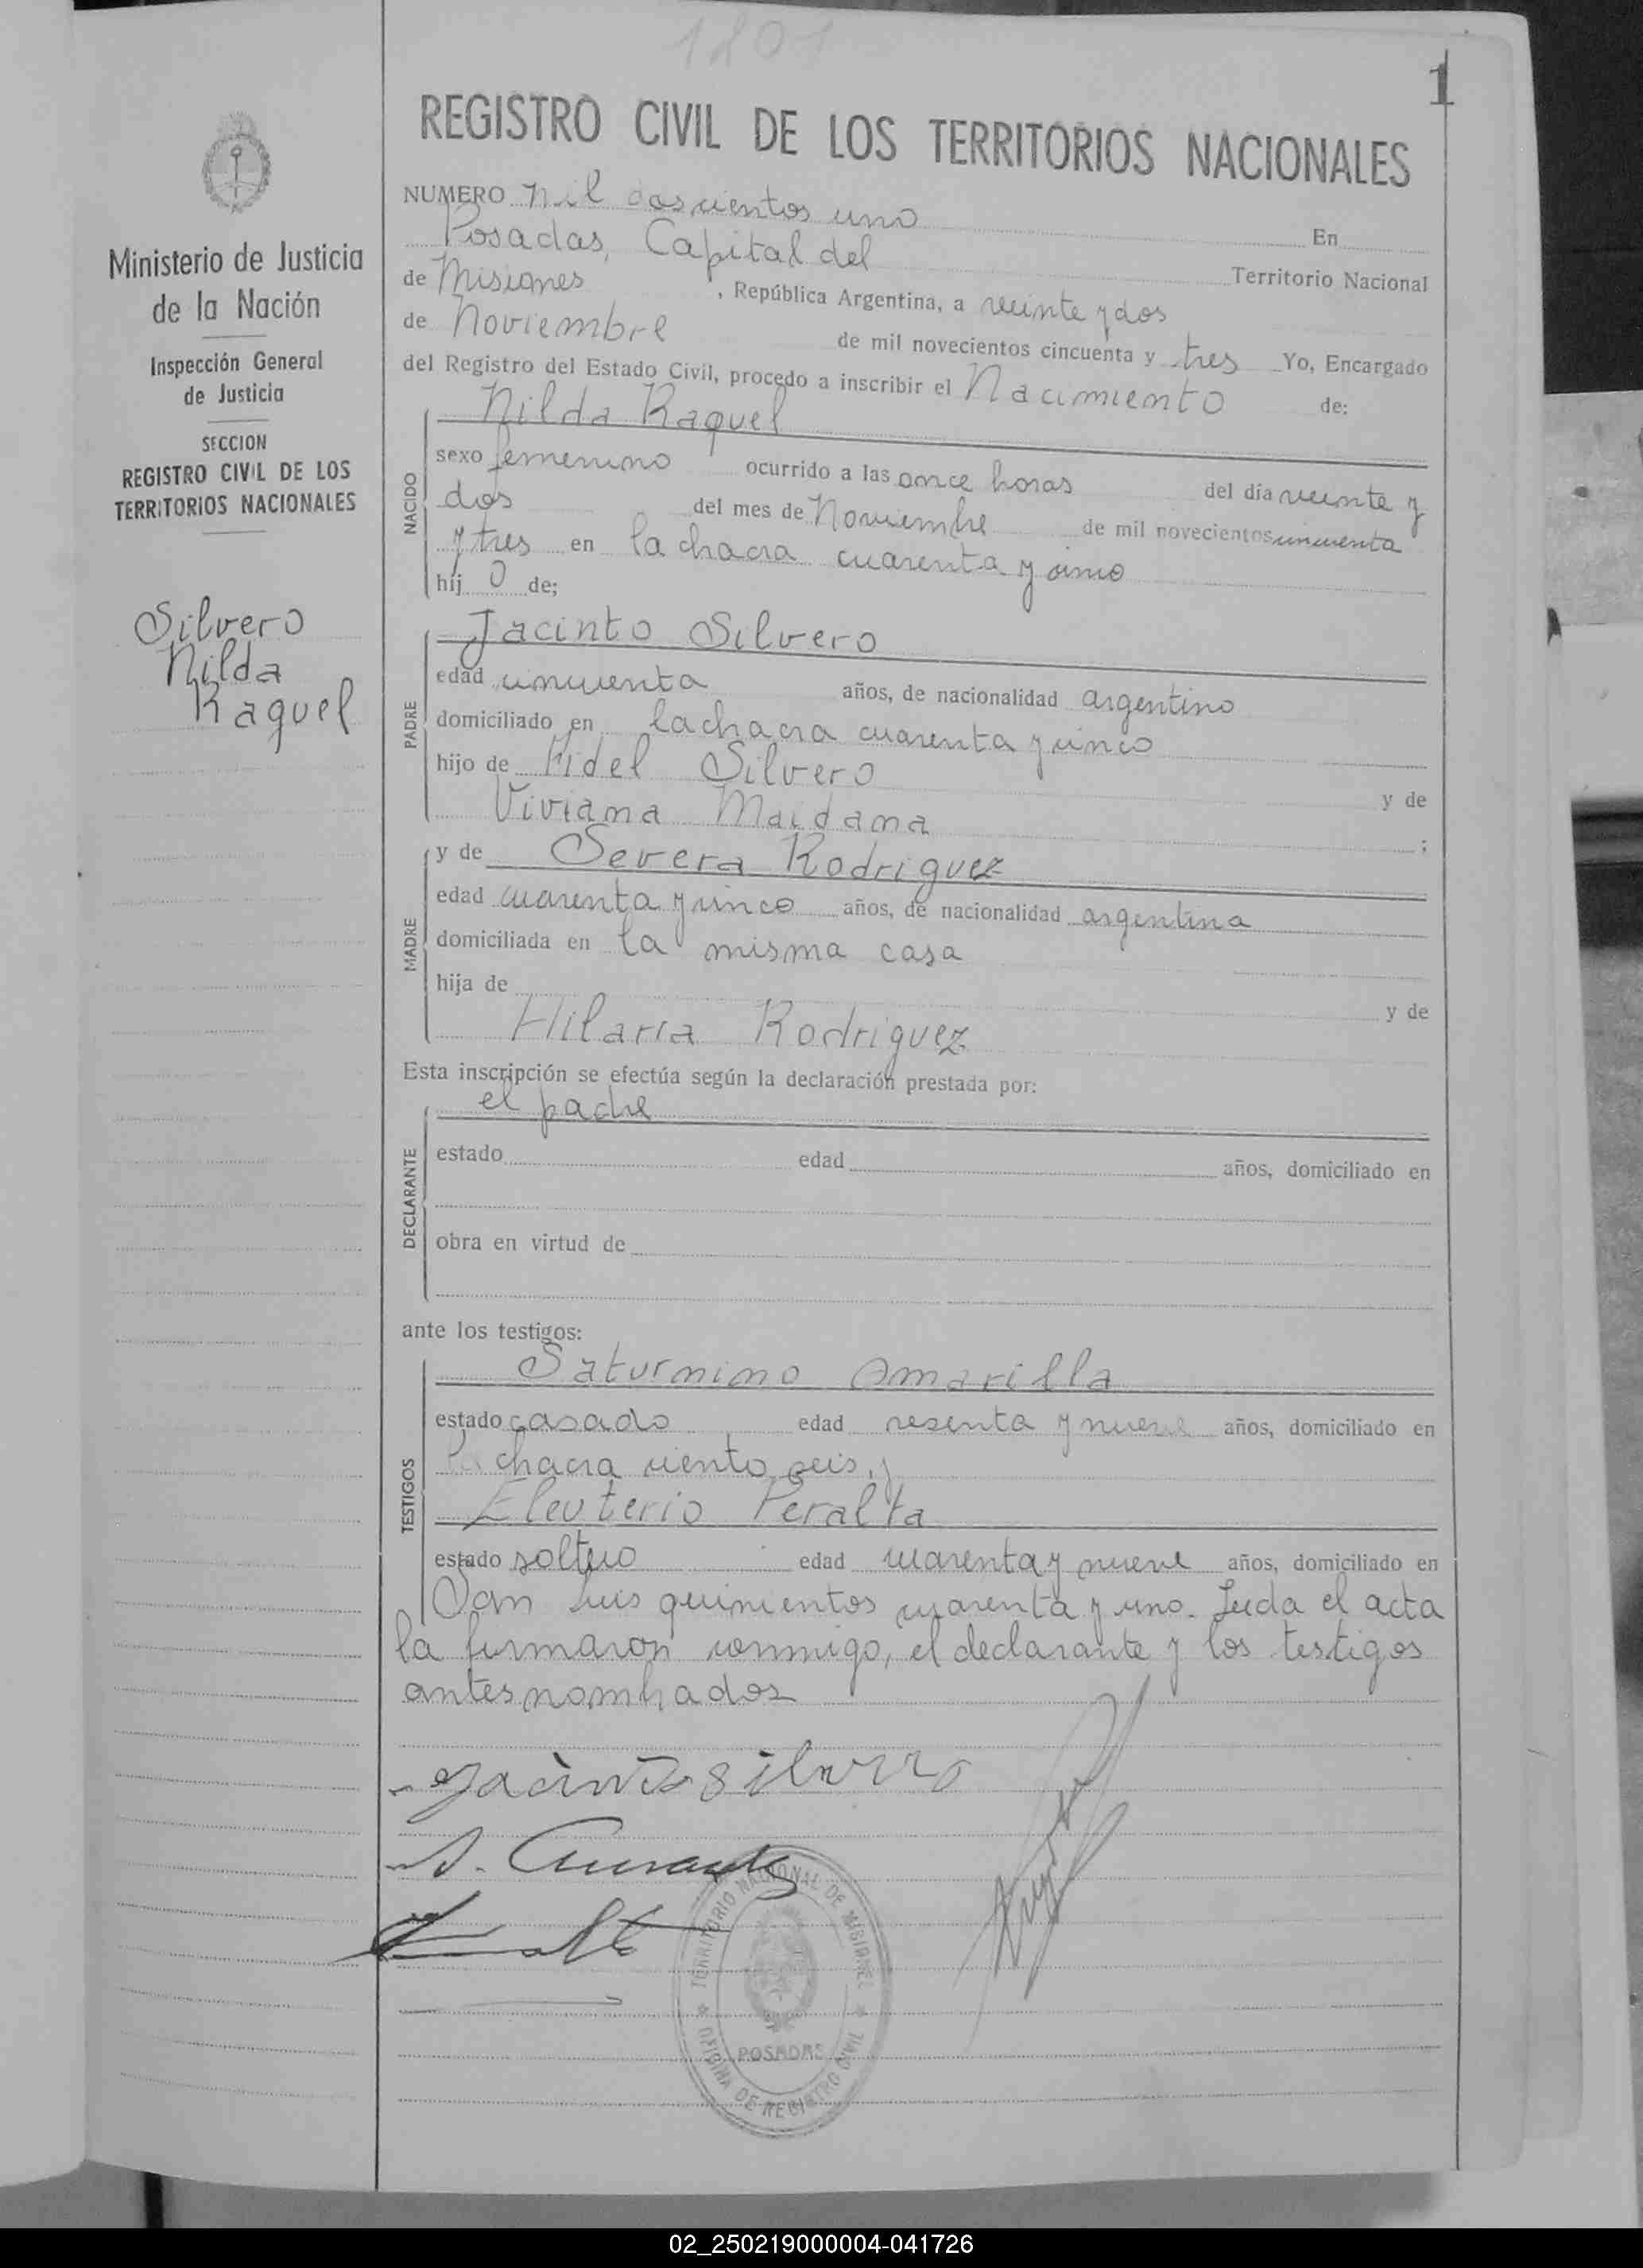 1201
1
REGISTRO CIVIL DE LOS TERRITORIOS NACIONALES
NUMERO Mil doscientos uno En
Posadas, Capital del Territorio Nacional
de Misiones, República Argentina, a veinte y dos
de Noviembre de mil novecientos cincuenta y tres Yo, Encargado
del Registro del Estado Civil, procedo a inscribir el Nacimiento de:
NACIDO
Nilda Raquel
sexo femenino ocurrido a las once horas del día veinte y
dos del mes de Noviembre de mil novecientos cincuenta
y tres en la chacra cuarenta y cinco
hij o de;
PADRE
Jacinto Silvero
edad cincuenta años, de nacionalidad argentino
domiciliado en la chacra cuarenta y cinco
hijo de Fidel Silvero y de
Viviana Maidana ;
MADRE
y de Severa Rodriguez
edad cuarenta y cinco años, de nacionalidad argentina
domiciliada en la misma casa
hija de y de
Hilaria Rodriguez
Esta inscripción se efectúa según la declaración prestada por:
DECLARANTE
el padre
estado edad años, domiciliado en
obra en virtud de
ante los testigos:
TESTIGOS
Saturnino Amarilla
estado casado edad sesenta y nueve años, domiciliado en
la chacra ciento seis, y
Eleuterio Peralta
estado soltero edad cuarenta y nueve años, domiciliado en
San Luis quinientos cuarenta y uno. Leida el acta
la firmaron conmigo, el declarante y los testigos
antes nombrados
Jacinto Silvero
TERRITORIO NACIONAL DE MISIONES
OFICINA DE REGISTRO CIVIL
POSADAS
Ministerio de Justicia
de la Nación
Inspección General
de Justicia
SECCION
REGISTRO CIVIL DE LOS
TERRITORIOS NACIONALES
Silvero
Nilda
Raquel
02_250219000004-041726